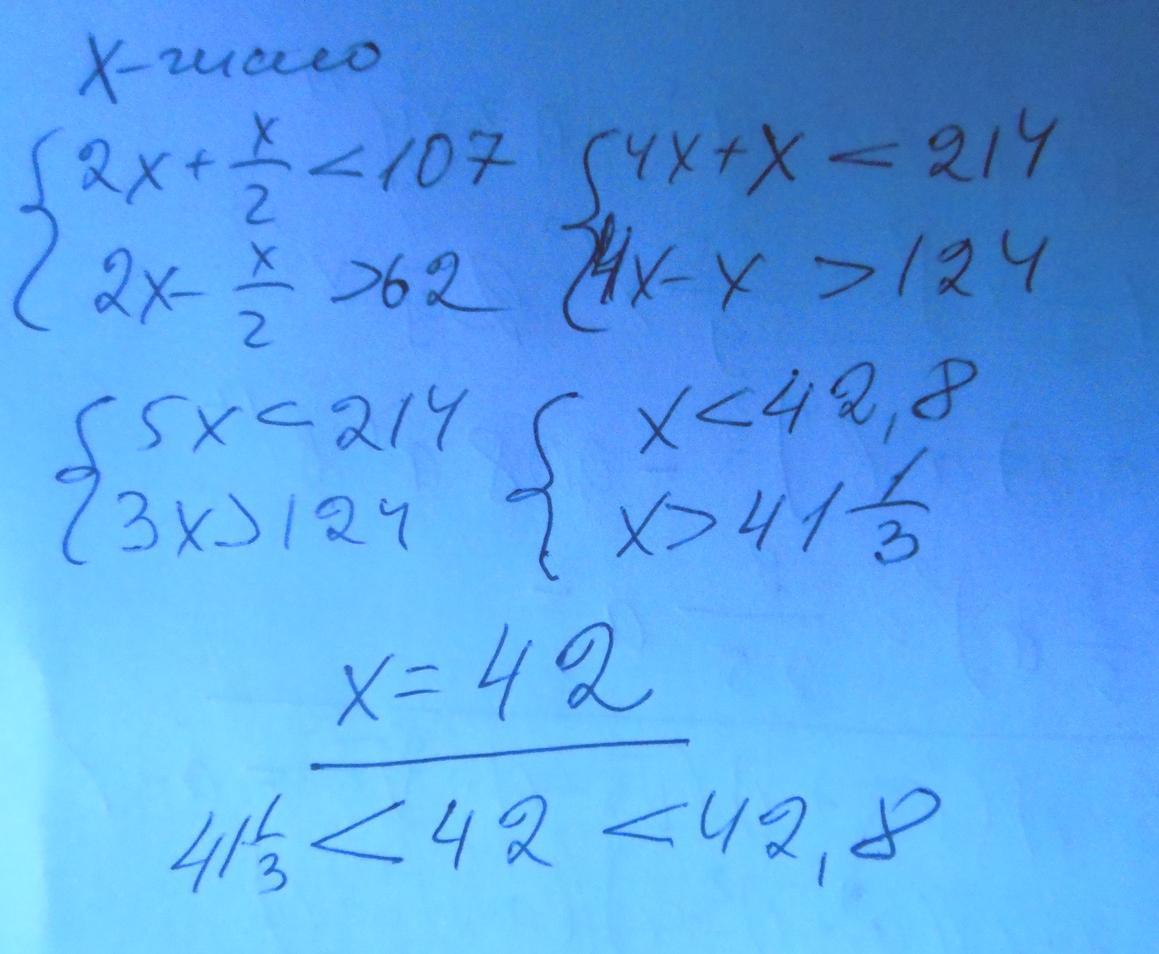 x - число
{ 2x + x/2 < 107 { 4x + x < 214
2x - x/2 > 62 4x - x > 124
{ 5x < 214 { x < 42,8
3x > 124 x > 41 1/3
x = 42
41 1/3 < 42 < 42,8